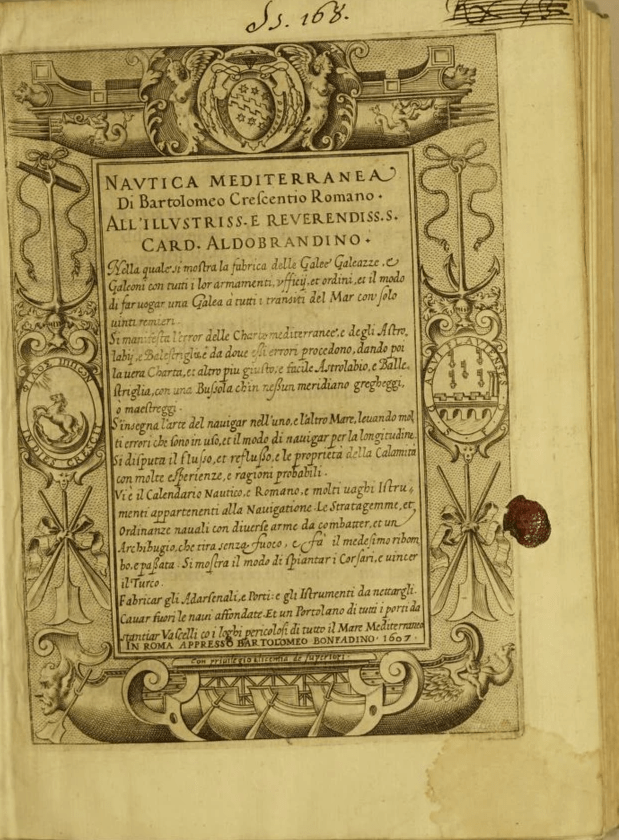 Ss. 168.
NAVTICA MEDITERRANEA
Di Bartolomeo Crescentio Romano.
ALL'ILLVSTRISS. E REVERENDISS. S.
CARD. ALDOBRANDINO.
Nella quale si mostra la fabrica delle Galee Galeazze, e
Galeoni con tutti i lor armamenti, vfficij, et ordini, et il modo
di far uogar una Galea a tutti i transiti del Mar con solo
uinti remieri.
Si manifesta l'error delle Charte mediterranee, e degli Astro,
labij, e Balestriglie, e da doue essi errori procedono, dando poi
la uera Charta, et altro piu giusto, e facile Astrolabio, e Balle,
striglia, con una Bussola ch'in nessun meridiano gregheggi,
o maestreggi.
S'insegna l'arte del nauigar nell'uno, e l'altro Mare, leuando mol
ti errori che sono in uso, et il modo di nauigar per la longitudine.
Si disputa il flusso, et reflusso, e le proprietà della Calamita
con molte esperienze, e ragioni probabili.
Vi è il Calendario Nautico, e Romano, e molti uaghi Istru,
menti appartenenti alla Nauigatione. Le Stratagemme, et
Ordinanze nauali con diuerse arme da combatter, et un
Archibugio, che tira senza fuoco, e fà il medesimo ribom
bo, e passata. Si mostra il modo di spiantar i Corsari, e uincer
il Turco.
Fabricar gli Adarsenali, e Porti: e gli Istrumenti da nettargli.
Cauar fuori le naui affondate. Et un Portolano di tutti i porti da
stantiar Vascelli co i loghi pericolosi di tutto il Mare Mediterraneo
IN ROMA APPRESSO BARTOLOMEO BONFADINO. 1607.
Con priuilegio e licentia de superiori.
IN DIES CRESCIT